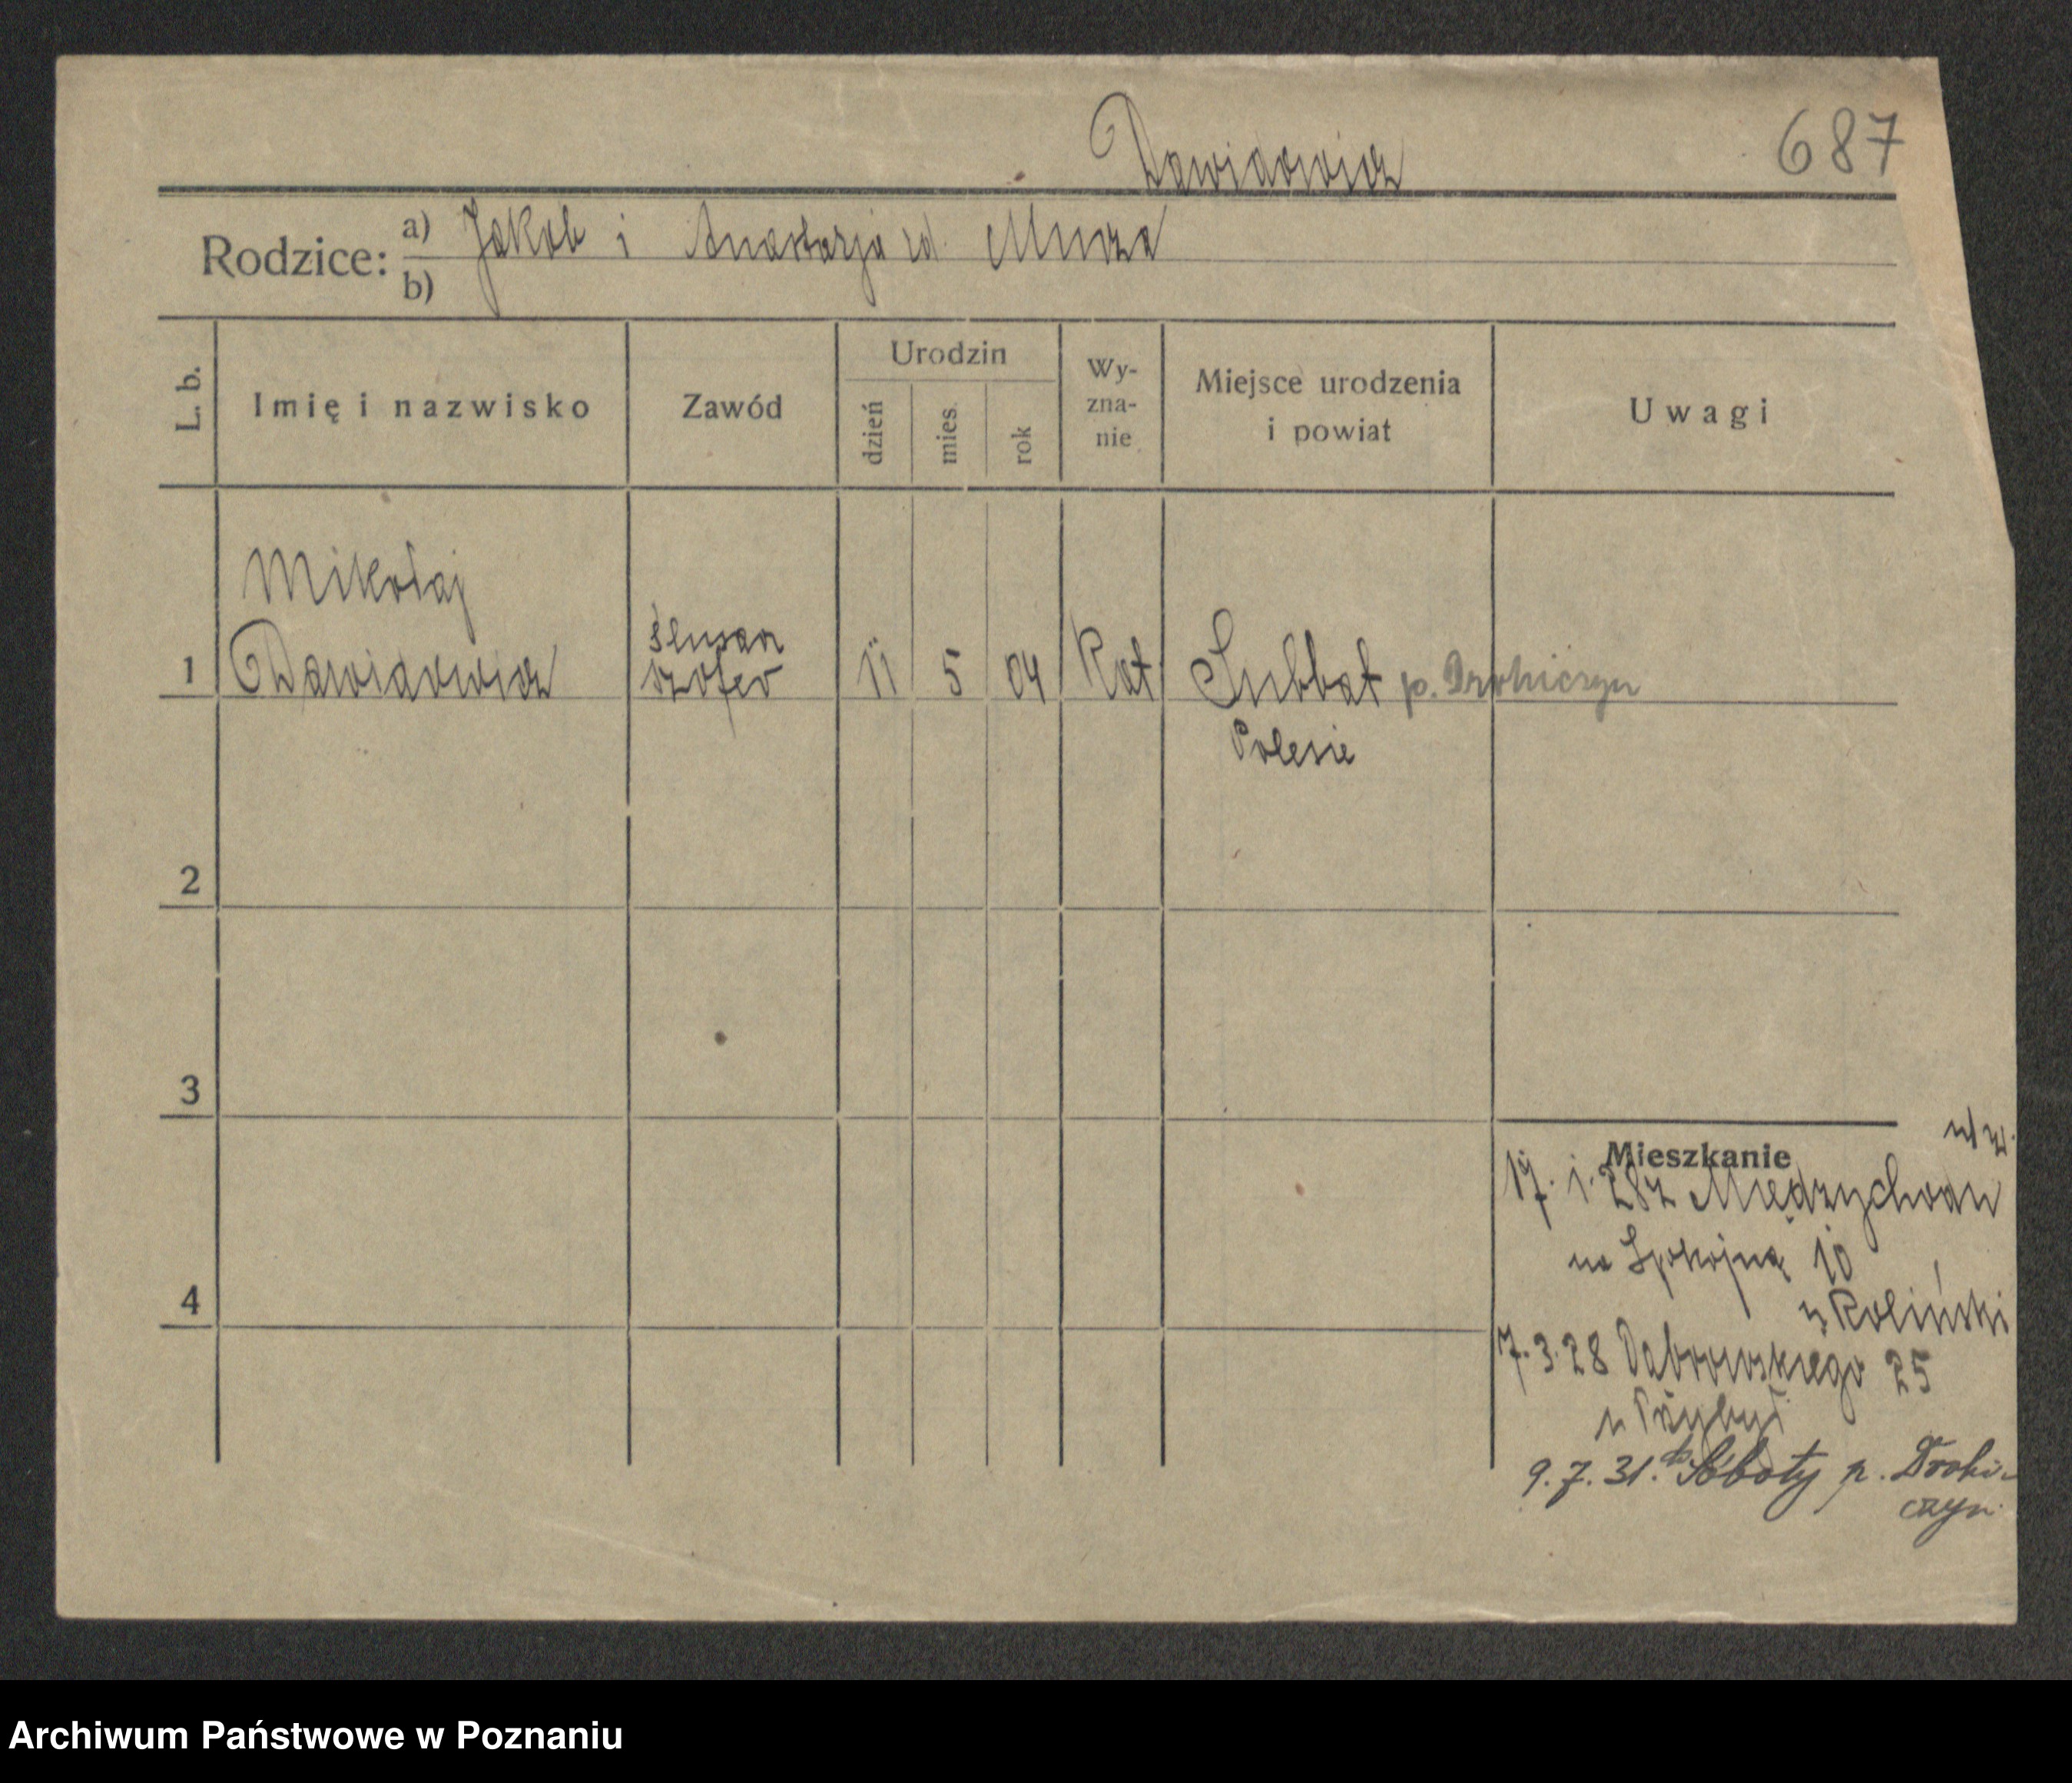 Dawidowicz 687
Rodzice: a) Jakob i Anastazja rd. Murza
b)
L. b. Imię i nazwisko Zawód Urodzin dzień mies. rok Wy-zna-nie Miejsce urodzenia i powiat Uwagi
Mikołaj
1 Dawidowicz ślusarz szofer 11 5 04 Kat Subbat p. Drohiczyn
Polesie
2
3
4
Mieszkanie
17. 1. 28 z Międzychodu
na Spokojną 10
u Roliński
7.3.28 Dąbrowskiego 25
u Przybył
9.7.31. do Sóboty p. Drohi-
czyn
Archiwum Państwowe w Poznaniu